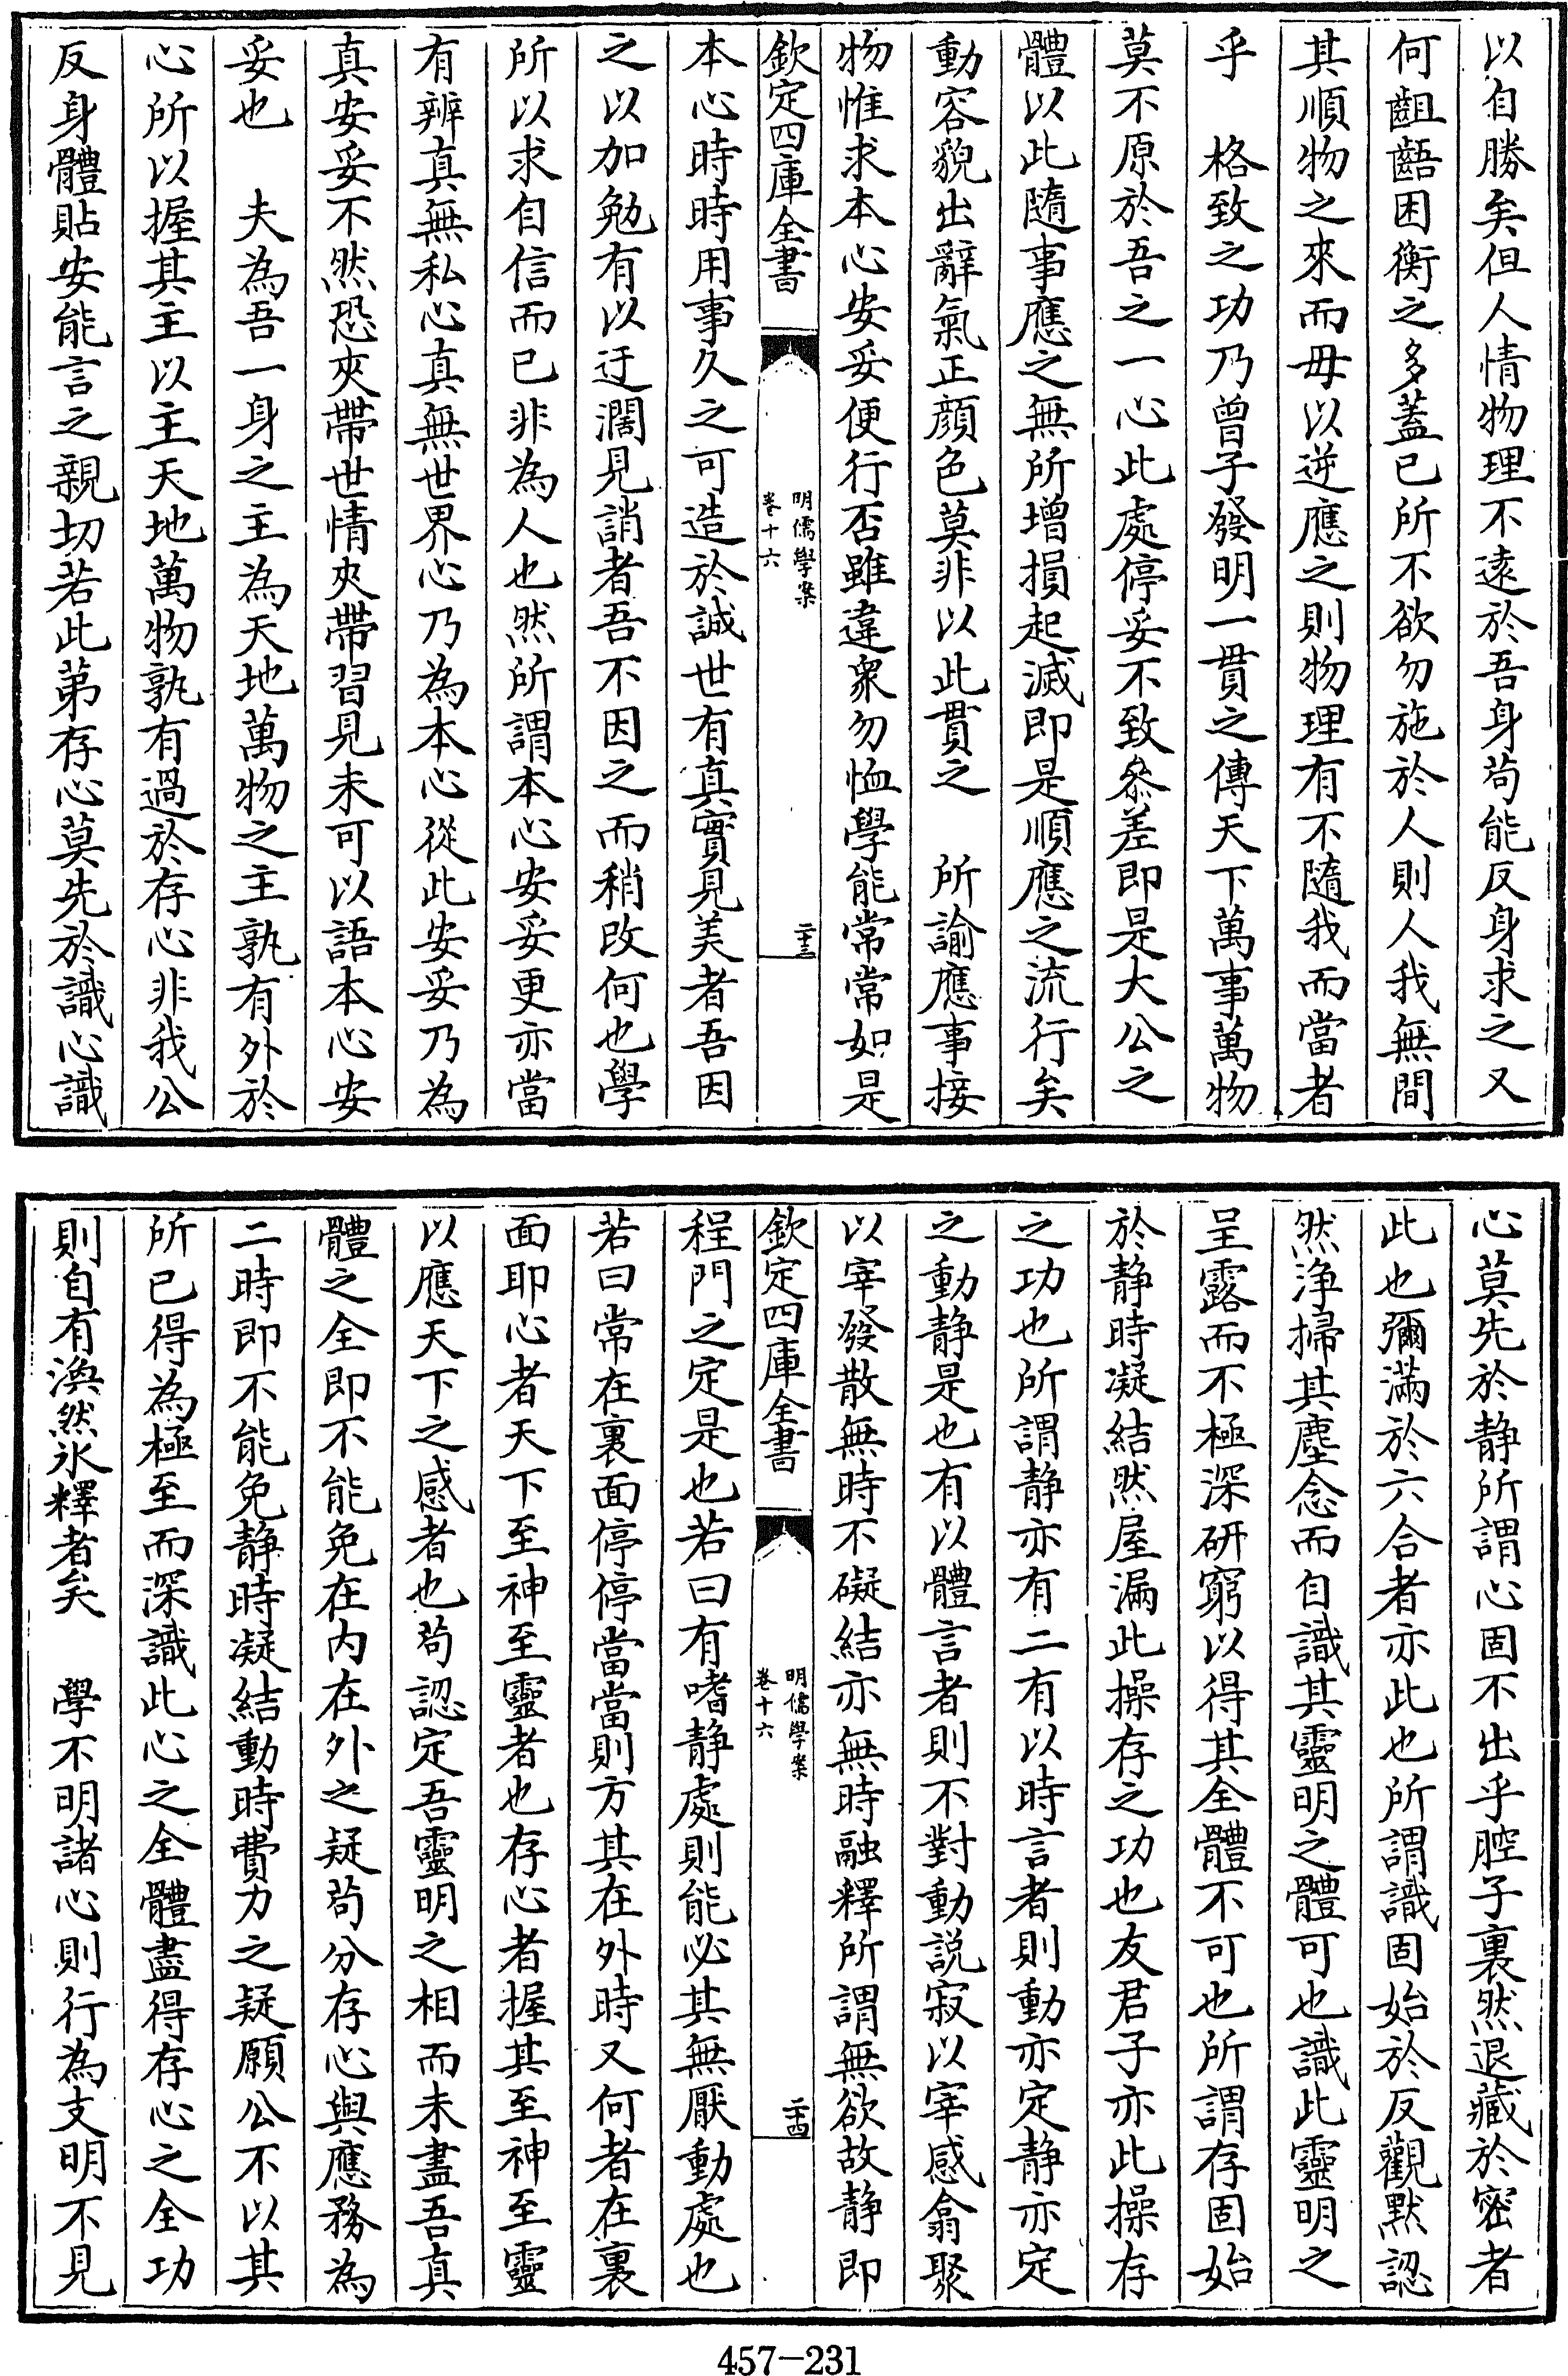 以自勝矣但人情物理不遠於吾身茍能反身求之又
何齟齬困衡之多蓋已所不欲勿施於人則人我無間
其順物之來而毋以逆應之則物理有不隨我而當者
乎　格致之功乃曾子發明一貫之傳天下萬事萬物
莫不原於吾之一心此處停妥不致叅差即是大公之
體以此隨事應之無所增損起滅即是順應之流行矣
動容貌出辭氣正顔色莫非以此貫之　所諭應事接
物惟求本心安妥便行否雖違衆勿恤學能常常如是
欽定四庫全書
明儒學案
卷十六
二十三
本心時時用事久之可造於誠世有真實見美者吾因
之以加勉有以迂濶見誚者吾不因之而稍改何也學
所以求自信而已非為人也然所謂本心安妥更亦當
有辨真無私心真無世界心乃為本心從此安妥乃為
真安妥不然恐夾帶世情夾帶習見未可以語本心安
妥也　夫為吾一身之主為天地萬物之主孰有外於
心所以握其主以主天地萬物孰有過於存心非我公
反身體貼安能言之親切若此第存心莫先於識心識
心莫先於静所謂心固不出乎腔子裏然退藏於密者
此也彌滿於六合者亦此也所謂識固始於反觀默認
然浄掃其塵念而自識其靈明之體可也識此靈明之
呈露而不極深研窮以得其全體不可也所謂存固始
於静時凝結然屋漏此操存之功也友君子亦此操存
之功也所謂静亦有二有以時言者則動亦定静亦定
之動静是也有以體言者則不對動説寂以宰感翕聚
以宰發散無時不礙結亦無時融釋所謂無欲故静即
欽定四庫全書
明儒學案
卷十六
二十四
程門之定是也若曰有嗜静處則能必其無厭動處也
若曰常在裏面停停當當則方其在外時又何者在裏
面耶心者天下至神至靈者也存心者握其至神至靈
以應天下之感者也茍認定吾靈明之相而未盡吾真
體之全即不能免在内在外之疑茍分存心與應務為
二時即不能免静時凝結動時費力之疑願公不以其
所已得為極至而深識此心之全體盡得存心之全功
則自有渙然氷釋者矣　學不明諸心則行為支明不見
457-231